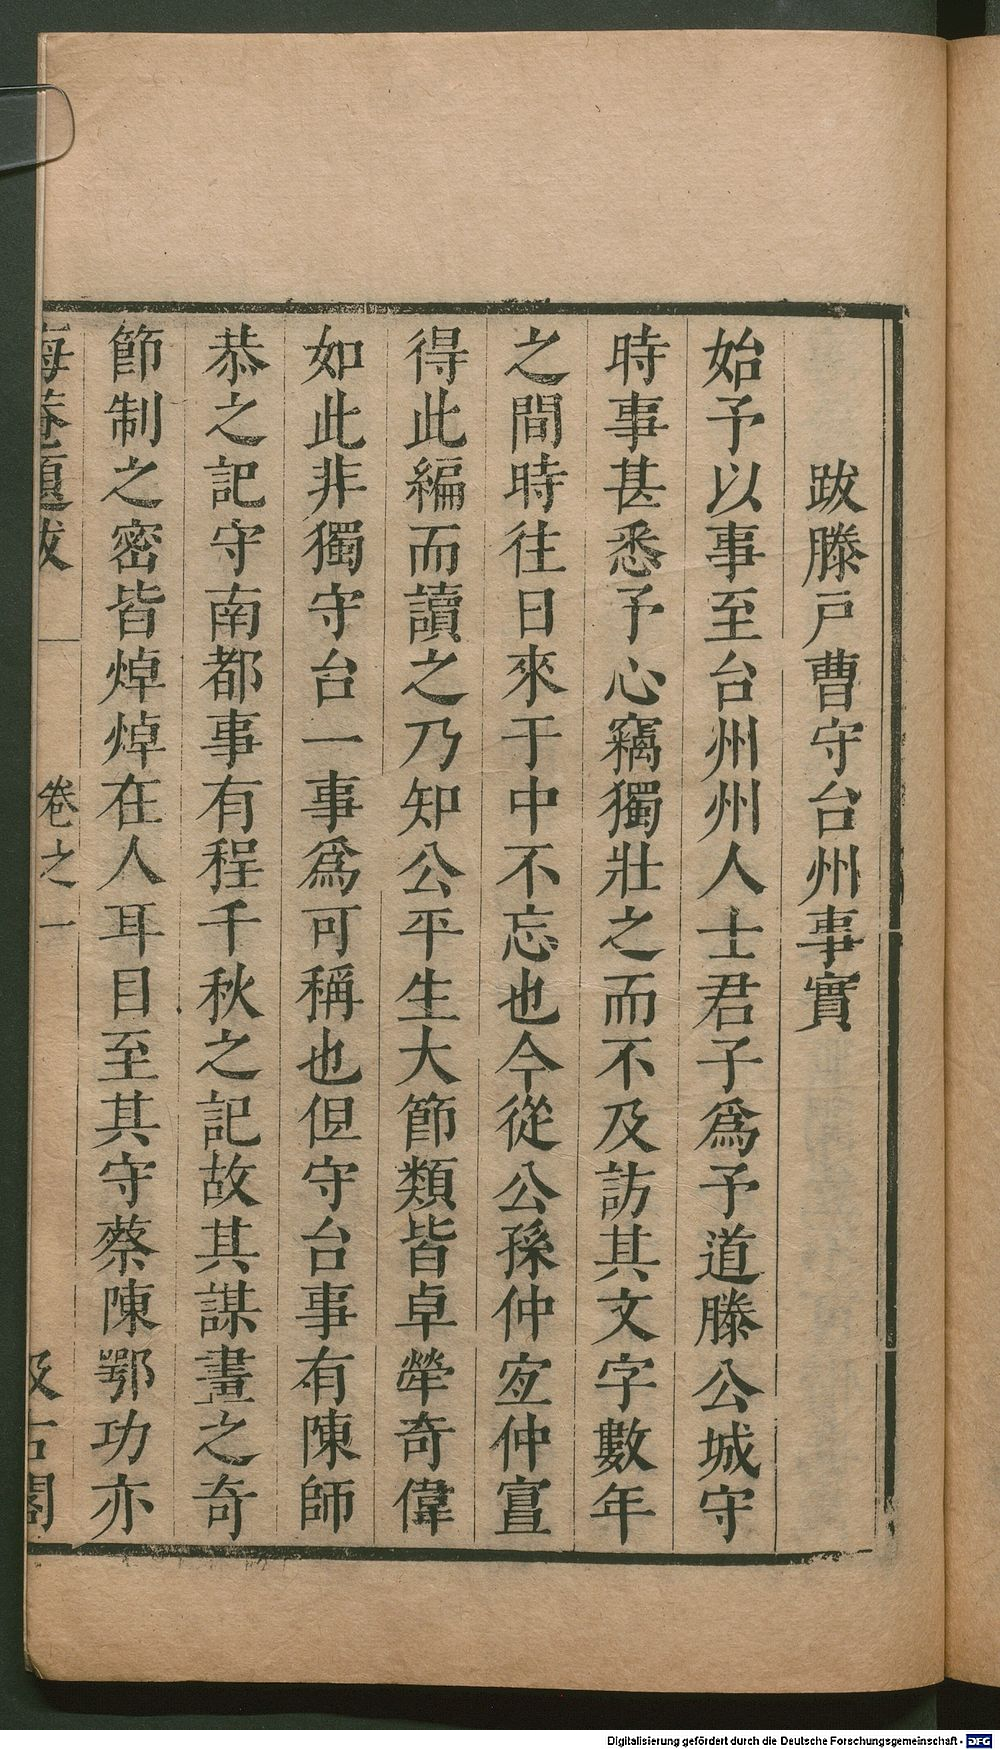 跋滕戸曹守台州事實
始予以事至台州州人士君子爲予道滕公城守
時事甚悉予心竊獨壯之而不及訪其文字數年
之間時往日來于中不忘也今從公孫仲宐仲宜
得此編而讀之乃知公平生大節類皆卓犖奇偉
如此非獨守台一事爲可稱也但守台事有陳師
恭之記守南都事有程千秋之記故其謀畫之奇
節制之密皆焯焯在人耳目至其守蔡陳鄂功亦
海菴題跋 卷之一 汲古閣
Digitalisierung gefördert durch die Deutsche Forschungsgemeinschaft - DFG